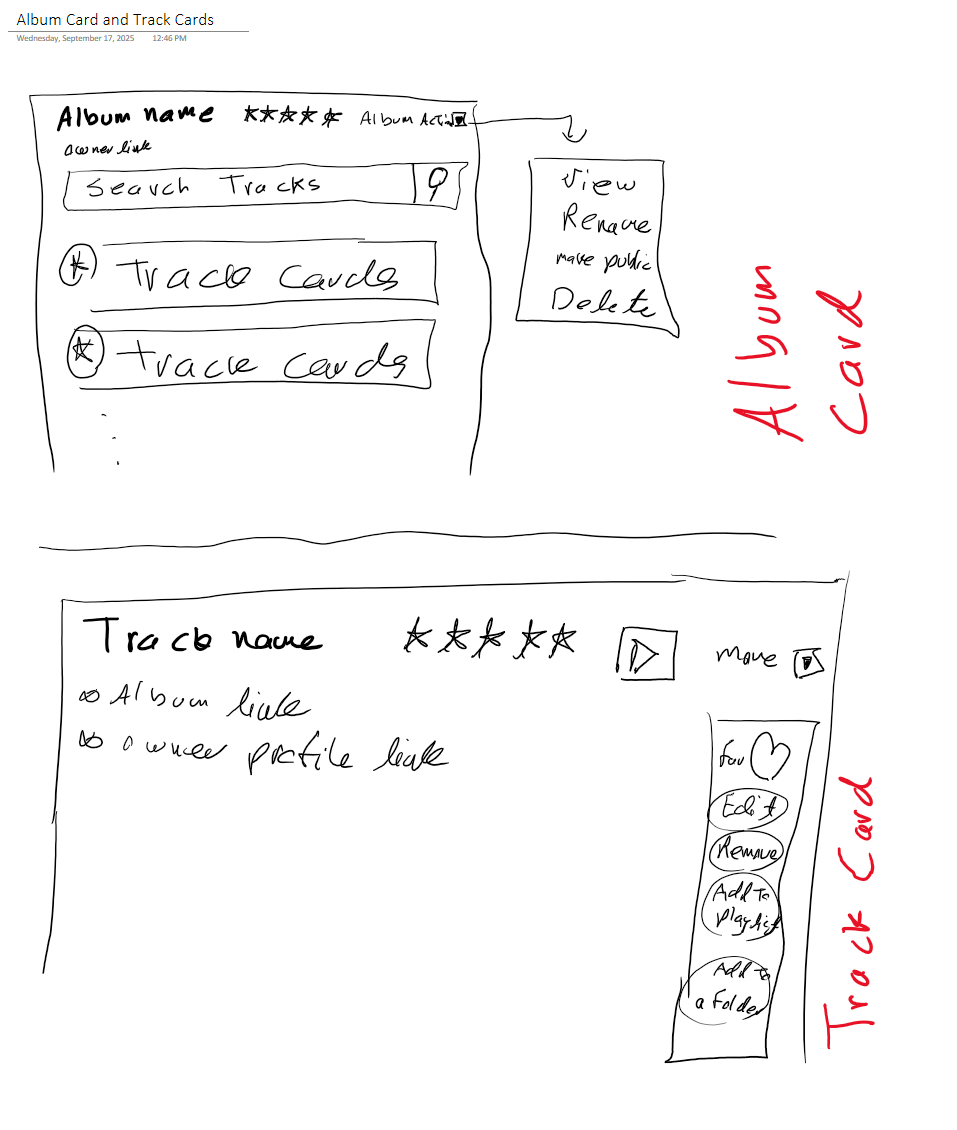 Album Card and Track Cards
Wednesday, September 17, 2025 12:46 PM
Album name Album Acti
owner link
Search Tracks
Track cards
Track cards
View
Rename
make public
Delete
Album
Card
Track name
Album link
owner profile link
fav
Edit
Remove
Add to
Playlist
Add to
a Folder
Track Card